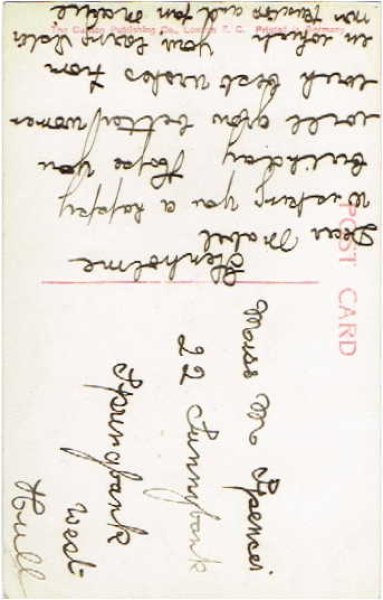 POST CARD
The Carlton Publishing Co., London E. C. Printed in Germany
Dear Mabel
Wishing you a happy
birthday Hope you
will grow better woman
with best wishes from
your loving
and
Miss M Spencer
22 Sunnybank
Springbank
West
Hull